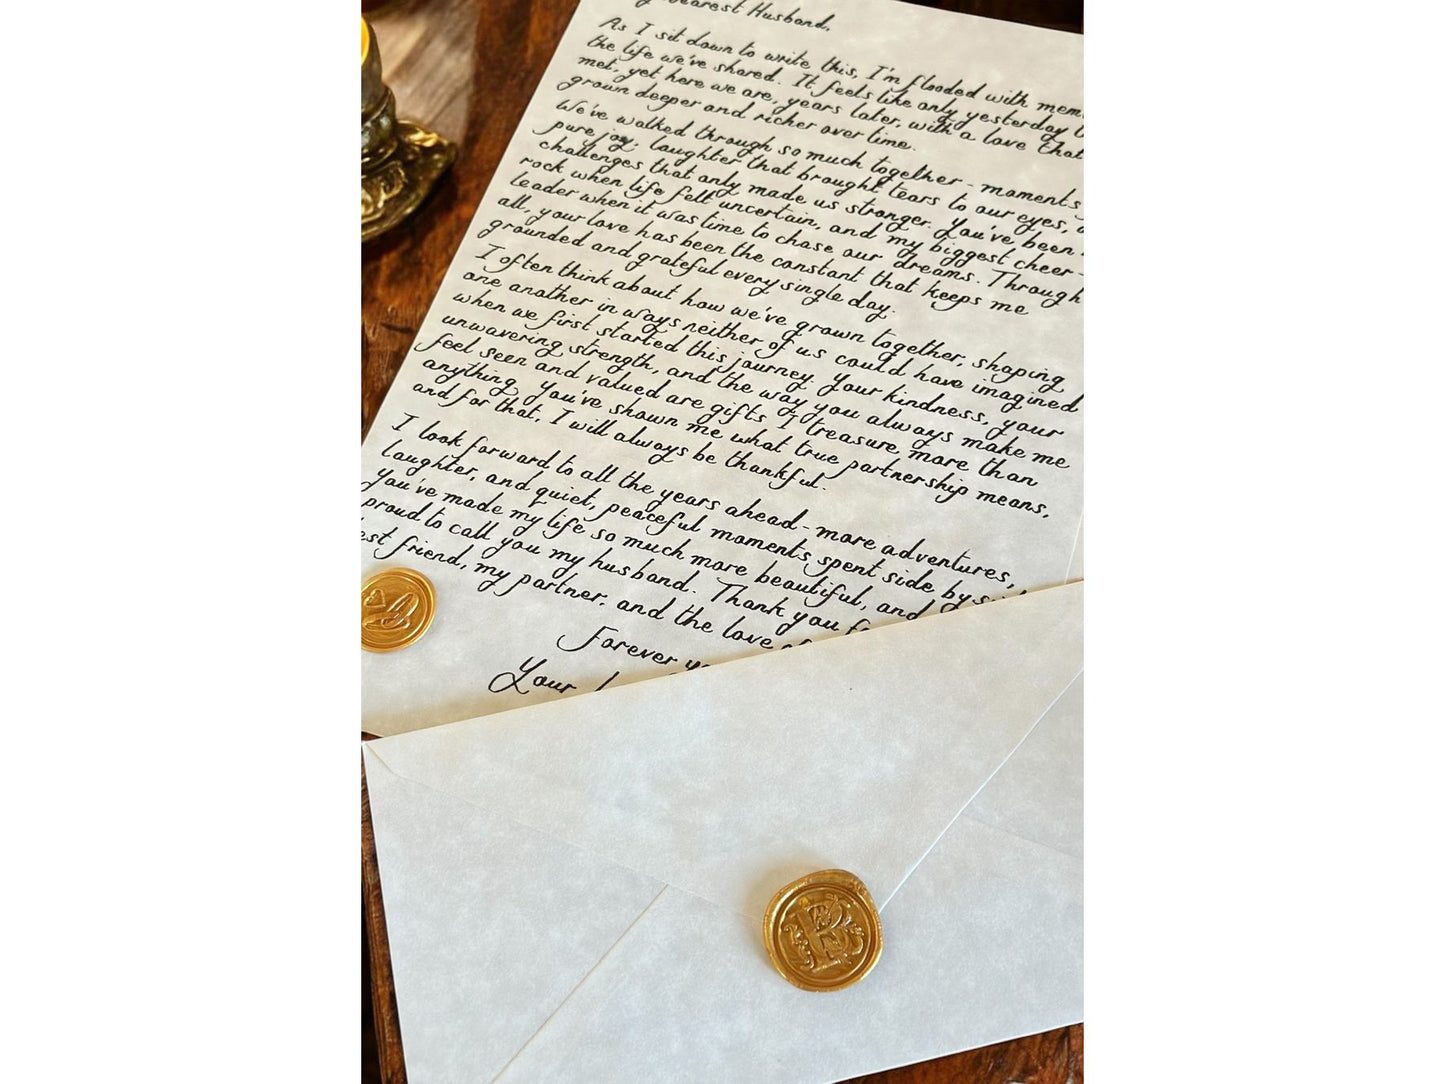 Dearest Husband,
As I sit down to write this, I'm flooded with mem
the life we've shared. It feels like only yesterday
met, yet here we are, years later, with a love that
grown deeper and richer over time.
We've walked through so much together - moments
pure joy, laughter that brought tears to our eyes,
challenges that only made us stronger. You've been
rock when life felt uncertain, and my biggest cheer-
leader when it was time to chase our dreams. Through
all, your love has been the constant that keeps me
grounded and grateful every single day.
I often think about how we've grown together, shaping
one another in ways neither of us could have imagined
when we first started this journey. Your kindness, your
unwavering strength, and the way you always make me
feel seen and valued are gifts I treasure more than
anything. You've shown me what true partnership means,
and for that, I will always be thankful.
I look forward to all the years ahead - more adventures,
laughter, and quiet, peaceful moments spent side by
You've made my life so much more beautiful, and
proud to call you my husband. Thank you
est friend, my partner, and the love
Forever
Your